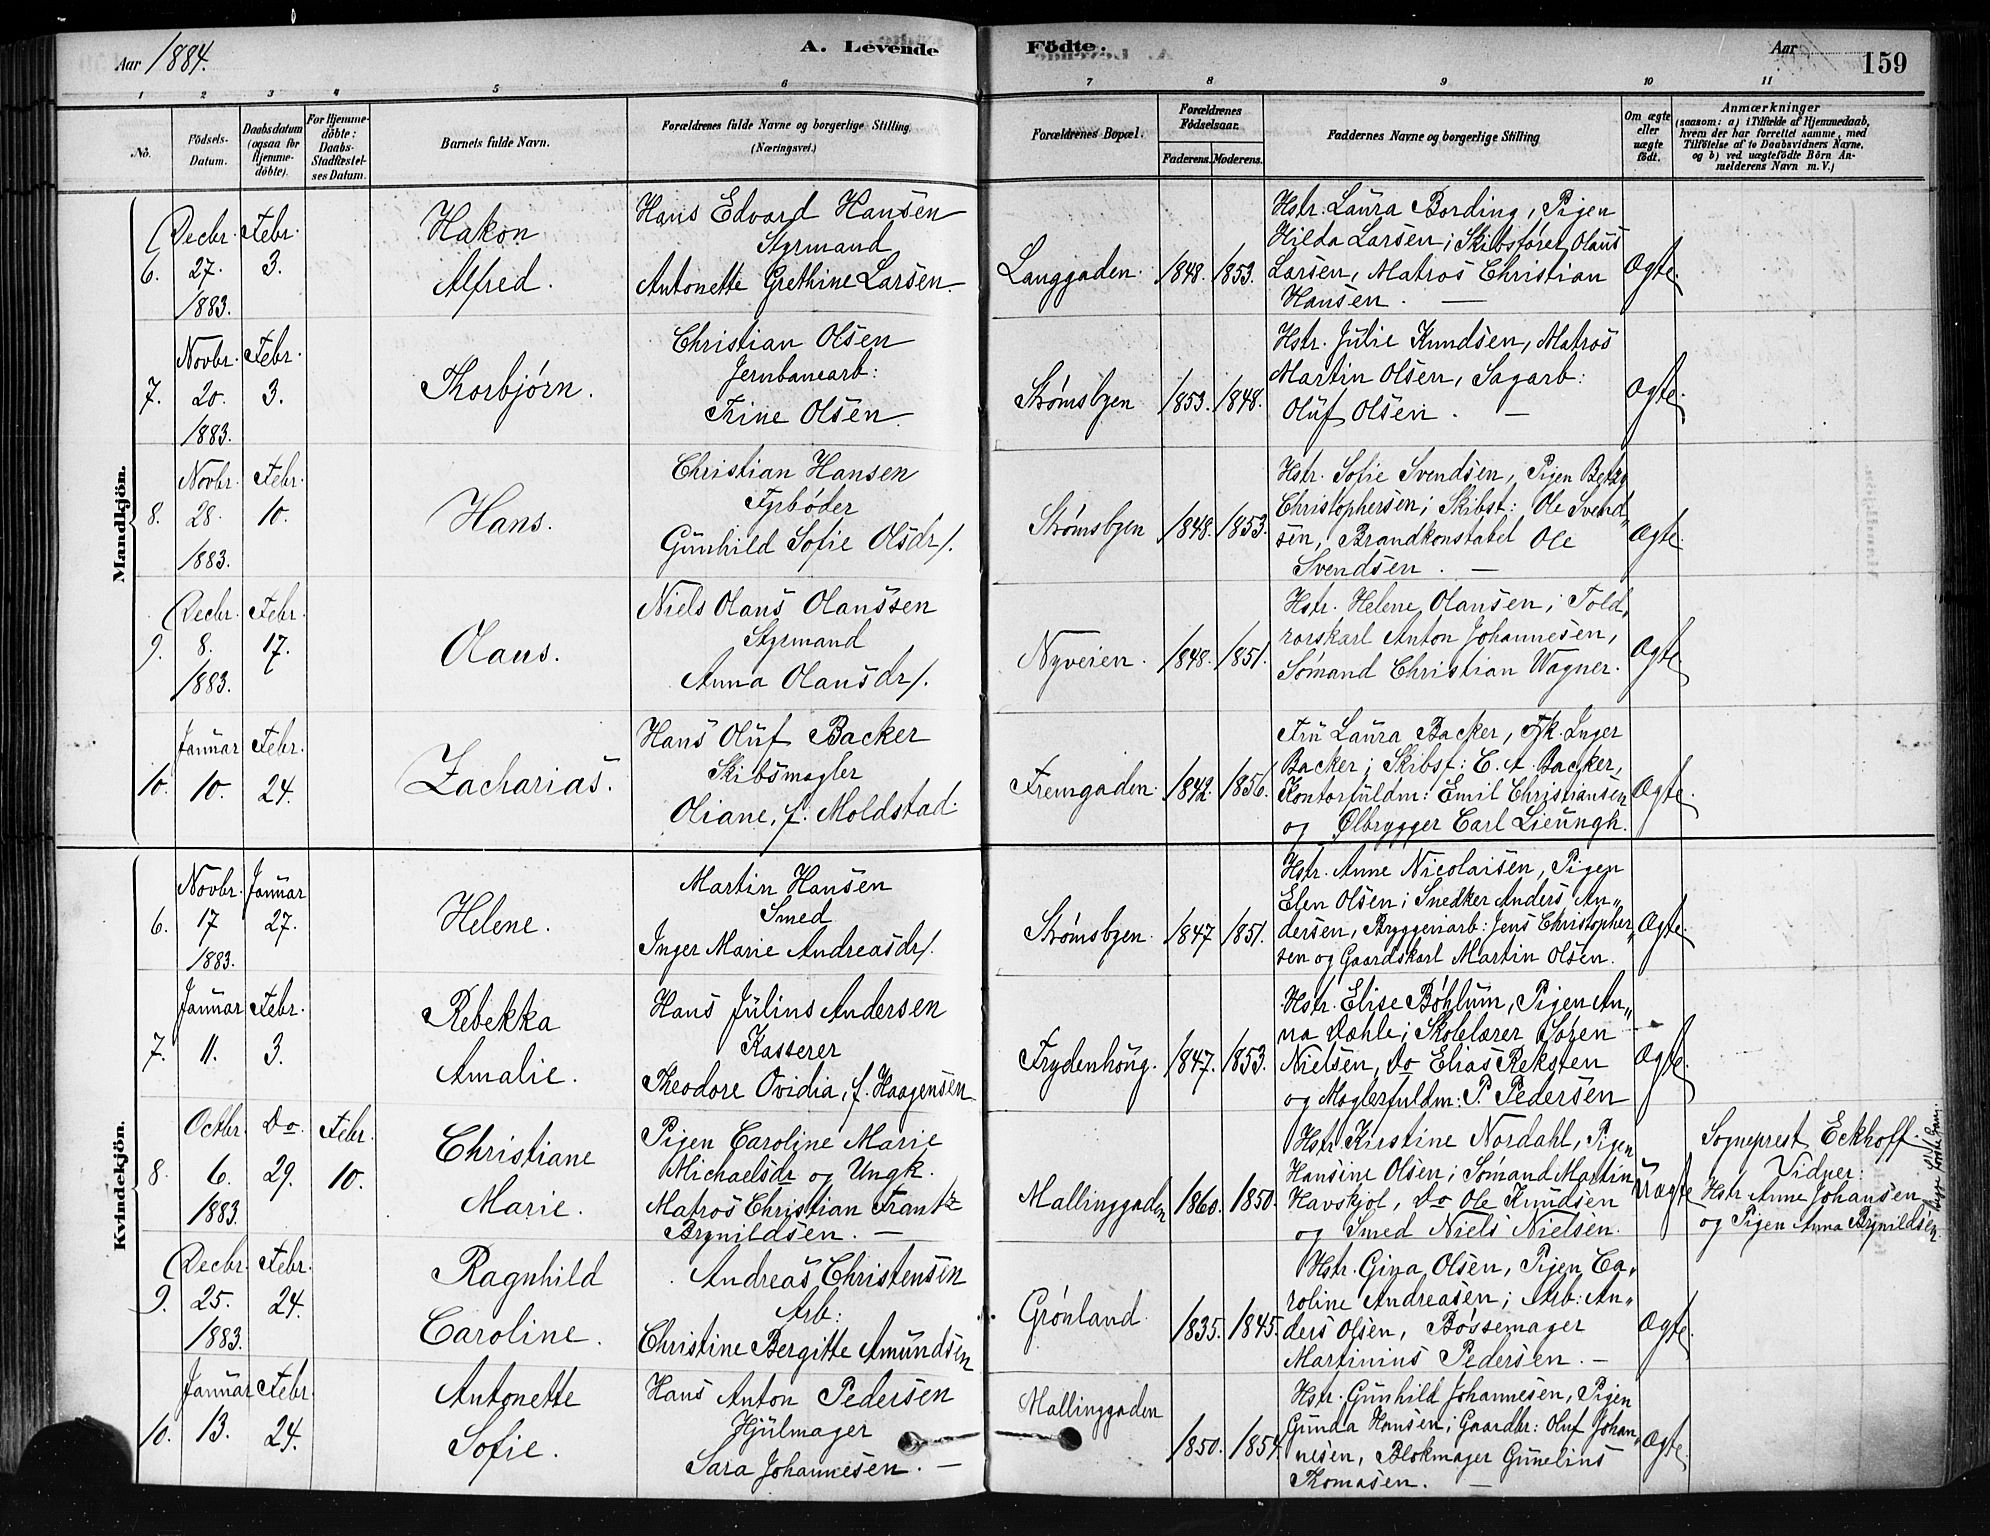 Aar 1884.
A. Levende Födte.
Aar
159
1 2 3 4 5 6 7 8 9 10 11
No.
Födsels-Datum.
Daabsdatum (ogsaa for Hjemme-döbte).
For Hjemme-döbte: Daabs-Stadfæstel-ses Datum.
Barnets fulde Navn.
Forældrenes fulde Navne og borgerlige Stilling. (Næringsvei.)
Forældrenes Bopæl.
Forældrenes Födselsaar.
Faderens. Moderens.
Faddernes Navne og borgerlige Stilling
Om ægte eller uægte födt.
Anmærkninger
(saasom: a) i Tilfælde af Hjemmedaab,
hvem der har forrettet samme, med
Tilföielse af to Daabsvidners Navne,
og b) ved uægtefödte Börn An-
melderens Navn m. V.)
Mandkjön.
6.
Decbr. 27. 1883.
Febr. 3.
Hakon
Alfred.
Hans Edvard Hansen
Styrmand
Antonette Grethine Larsen
Langgaden. 1848. 1853.
Hstr. Laura Bording, Pigen
Hilda Larsen; Skibsfører Olaus
Larsen, Matros Christian
Hansen. —
Ægte.
7.
Novbr. 20. 1883.
Febr. 3.
Thorbjørn.
Christian Olsen
Jernbanearb:
Trine Olsen
Strømsbyen 1853. 1848.
Hstr. Julie Knudsen, Matros
Martin Olsen, Sagarb:
Oluf Olsen. —
Ægte.
8.
Novbr. 28. 1883.
Febr. 10.
Hans.
Christian Hansen
Fyrbøder
Gunhild Sofie Olsdr/.
Strømsbyen 1848. 1853.
Hstr. Sofie Svendsen, Pigen Betzy
Christophersen; Skibst: Ole Svend„
sen, Brandkonstabel Ole
Svendsen. —
Ægte.
9.
Decbr. 8. 1883.
Febr. 17.
Olaus.
Niels Olaus Olaussen
Styrmand
Anna Olausdr/.
Nyveien. 1848. 1851.
Hstr. Helene Olausen; Told,
rorskarl Anton Johannesen,
Sømand Christian Wagner.
Ægte.
10.
Januar 10.
Febr. 24.
Zacharias.
Hans Oluf Backer
Skibsmægler
Oliane, f. Moldstad.
Fremgaden. 1842. 1856.
Fru Laura Backer, Frk. Inger
Backer; Skibst: C. A. Backer,
Kontorfuldm: Emil Christiansen
og Ølbrygger Carl Lieungh.
Ægte.
Kvindekjön.
6.
Novbr. 17 1883.
Januar 27.
Helene.
Martin Hansen
Smed
Inger Marie Andreasdr/.
Strømsbyen. 1847 1851.
Hstr. Anne Nicolaisen, Pigen
Elen Olsen; Snedker Anders An„
dersen, Bryggeriarb: Jens Christopher„
sen og Gaardskarl Martin Olsen.
Ægte.
7.
Januar 11.
Febr. 3.
Rebekka
Amalie.
Hans Julius Andersen
Kasserer
Theodore Ovidia, f. Haagensen
Frydenhöug. 1847. 1853.
Hstr. Elise Bøhlum, Pigen An„
na Dæhle; Skolelærer Søren
Nielsen, Do Elias Reksten
og Mæglerfuldm: P. Pedersen
Ægte.
8.
Octbr. 6. 1883.
Do 29.
Febr. 10.
Christiane
Marie.
Pigen Caroline Marie
Michaelsdr og Ungk.
Matros Christian Frantz
Brynildsen. —
Mallinggaden 1860. 1850.
Hstr. Kirstine Nordahl, Pigen
Hansine Olsen; Sømand Martin
Havskjøl, Do Ole Knudsen
og Smed Niels Nielsen.
Uægte
Sogneprest Eckhoff.
Vidner:
Hstr Anne Johansen
og Pigen Anna Brynildsen
9.
Decbr. 25. 1883.
Febr. 24.
Ragnhild
Caroline.
Andreas Christensen
Arb:
Christine Bergitte Amundsen
Grønland. 1835. 1845.
Hstr. Gina Olsen, Pigen Ca„
roline Andreasen; Arb: An„
ders Olsen, Bøssemager
Martinius Pedersen. —
Ægte.
10.
Januar 13.
Febr. 24.
Antonette
Sofie.
Hans Anton Pedersen
Hjulmager
Sara Johannesen. —
Mallinggaden 1850. 1854.
Hstr. Gunhild Johannesen, Pigen
Gunda Hansen; Gaardbr: Oluf Johan„
nesen, Blokmager Gunelius
Thomasen. —
Ægte.